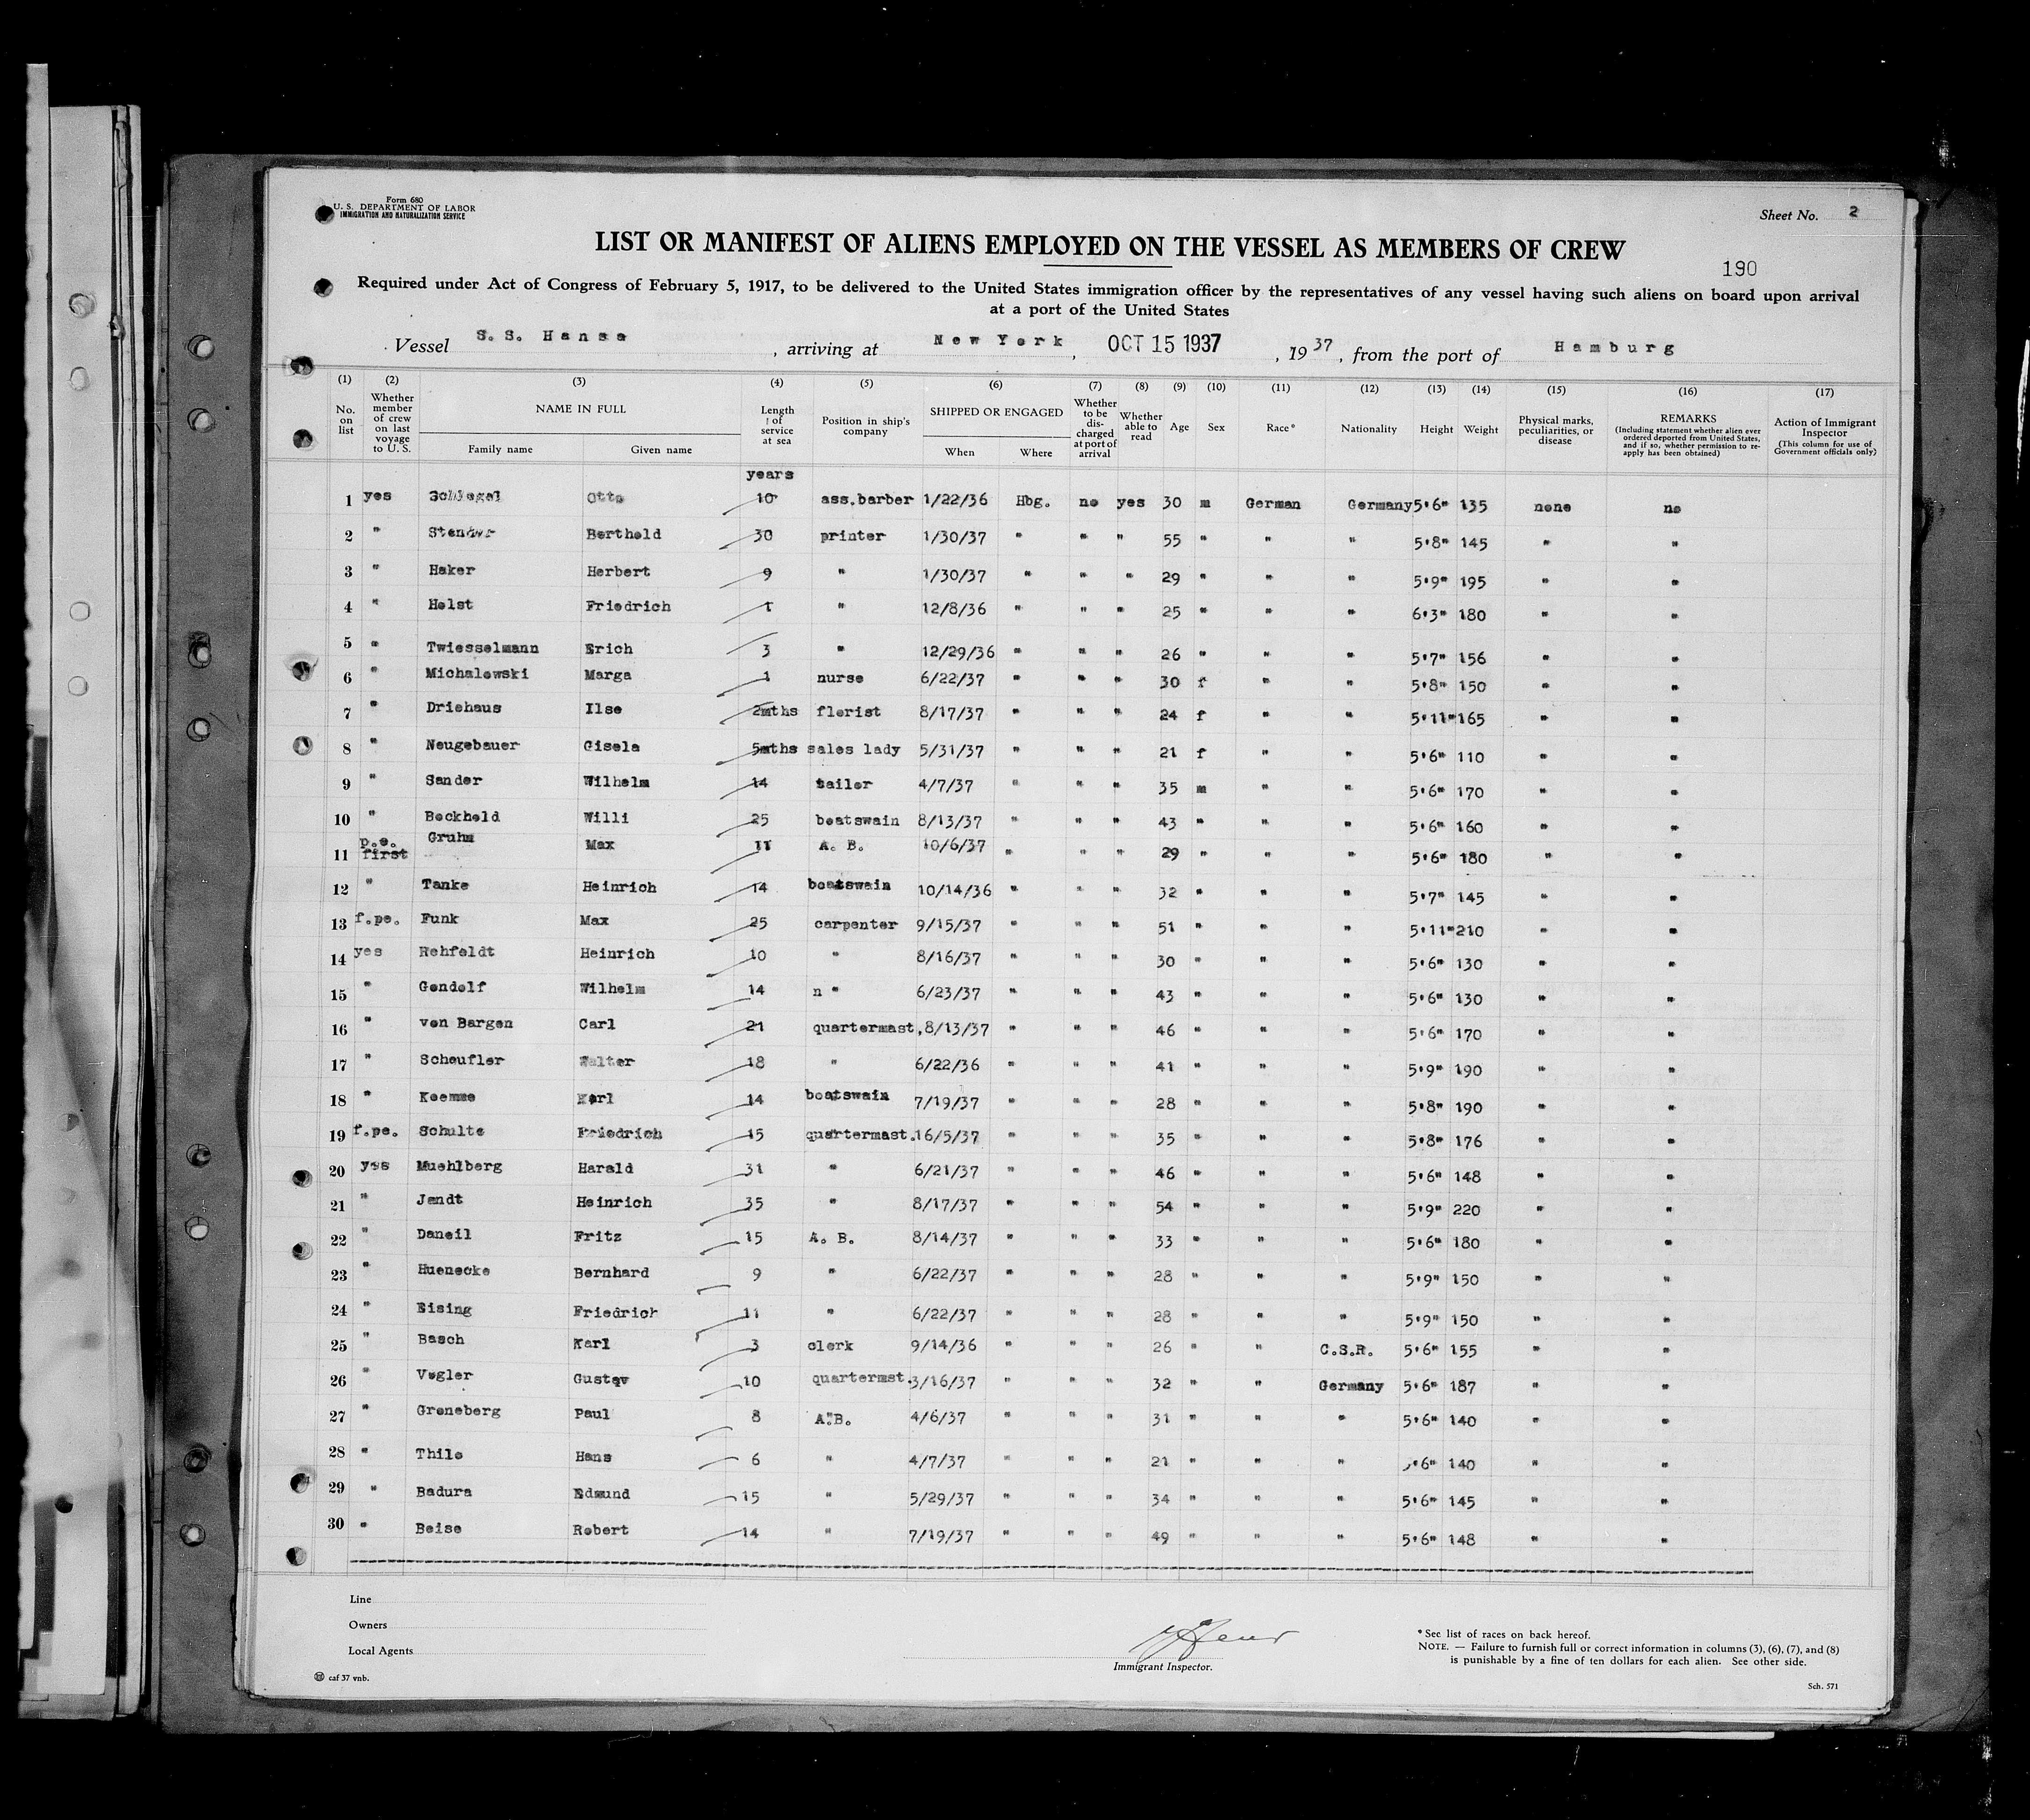 Form 680
U. S. DEPARTMENT OF LABOR
IMMIGRATION AND NATURALIZATION SERVICE
Sheet No. 2
LIST OR MANIFEST OF ALIENS EMPLOYED ON THE VESSEL AS MEMBERS OF CREW
190
Required under Act of Congress of February 5, 1917, to be delivered to the United States immigration officer by the representatives of any vessel having such aliens on board upon arrival
at a port of the United States
Vessel S. S. Hansa , arriving at New York , OCT 15 1937 , 19 37 , from the port of Hamburg
(1) (2) (3) (4) (5) (6) (7) (8) (9) (10) (11) (12) (13) (14) (15) (16) (17)
No. on list Whether member of crew on last voyage to U. S. NAME IN FULL Family name Given name Length of service at sea Position in ship's company SHIPPED OR ENGAGED When Where Whether to be discharged at port of arrival Whether able to read Age Sex Race* Nationality Height Weight Physical marks, peculiarities, or disease REMARKS (Including statement whether alien ever ordered deported from United States, and if so, whether permission to reapply has been obtained) Action of Immigrant Inspector (This column for use of Government officials only)
years
1 yes Schlegel Otto 10 ass.barber 1/22/36 Hbg. no yes 30 m German Germany 5'6" 135 none no
2 " Stender Berthold 30 printer 1/30/37 " " " 55 " " " 5'8" 145 " "
3 " Haker Herbert 9 " 1/30/37 " " " 29 " " " 5'9" 195 " "
4 " Holst Friedrich 1 " 12/8/36 " " " 25 " " " 6'3" 180 " "
5 " Twiesselmann Erich 3 " 12/29/36 " " " 26 " " " 5'7" 156 " "
6 " Michalowski Marga 1 nurse 6/22/37 " " " 30 f " " 5'8" 150 " "
7 " Driehaus Ilse 2mths florist 8/17/37 " " " 24 f " " 5'11" 165 " "
8 " Neugebauer Gisela 5mths sales lady 5/31/37 " " " 21 f " " 5'6" 110 " "
9 " Sander Wilhelm 14 tailor 4/7/37 " " " 35 m " " 5'6" 170 " "
10 " Bockhold Willi 25 boatswain 8/13/37 " " " 43 " " " 5'6" 160 " "
11 p.e. first Gruhm Max 11 A. B. 10/6/37 " " " 29 " " " 5'6" 180 " "
12 " Tanke Heinrich 14 boatswain 10/14/36 " " " 32 " " " 5'7" 145 " "
13 f.pe. Funk Max 25 carpenter 9/15/37 " " " 51 " " " 5'11" 210 " "
14 yes Rehfeldt Heinrich 10 " 8/16/37 " " " 30 " " " 5'6" 130 " "
15 " Gondolf Wilhelm 14 n " 6/23/37 " " " 43 " " " 5'6" 130 " "
16 " von Bargen Carl 21 quartermast. 8/13/37 " " " 46 " " " 5'6" 170 " "
17 " Scheufler Walter 18 " 6/22/36 " " " 41 " " " 5'9" 190 " "
18 " Koemme Karl 14 boatswain 7/19/37 " " " 28 " " " 5'8" 190 " "
19 f.pe. Schulte Friedrich 15 quartermast. 16/5/37 " " " 35 " " " 5'8" 176 " "
20 yes Muehlberg Harald 31 " 6/21/37 " " " 46 " " " 5'6" 148 " "
21 " Jandt Heinrich 35 " 8/17/37 " " " 54 " " " 5'9" 220 " "
22 " Daneil Fritz 15 A. B. 8/14/37 " " " 33 " " " 5'6" 180 " "
23 " Huenecke Bernhard 9 " 6/22/37 " " " 28 " " " 5'9" 150 " "
24 " Eising Friedrich 11 " 6/22/37 " " " 28 " " " 5'9" 150 " "
25 " Basch Karl 3 clerk 9/14/36 " " " 26 " " C.S.R. 5'6" 155 " "
26 " Vogler Gustav 10 quartermst. 3/16/37 " " " 32 " " Germany 5'6" 187 " "
27 " Groneberg Paul 8 A.B. 4/6/37 " " " 31 " " " 5'6" 140 " "
28 " Thilo Hans 6 " 4/7/37 " " " 21 " " " 6" 140 " "
29 " Badura Edmund 15 " 5/29/37 " " " 34 " " " 5'6" 145 " "
30 " Beise Robert 14 " 7/19/37 " " " 49 " " " 5'6" 148 " "
Line
Owners
Local Agents
caf 37 vnb.
Immigrant Inspector.
* See list of races on back hereof.
NOTE. — Failure to furnish full or correct information in columns (3), (6), (7), and (8)
is punishable by a fine of ten dollars for each alien. See other side.
Sch. 571